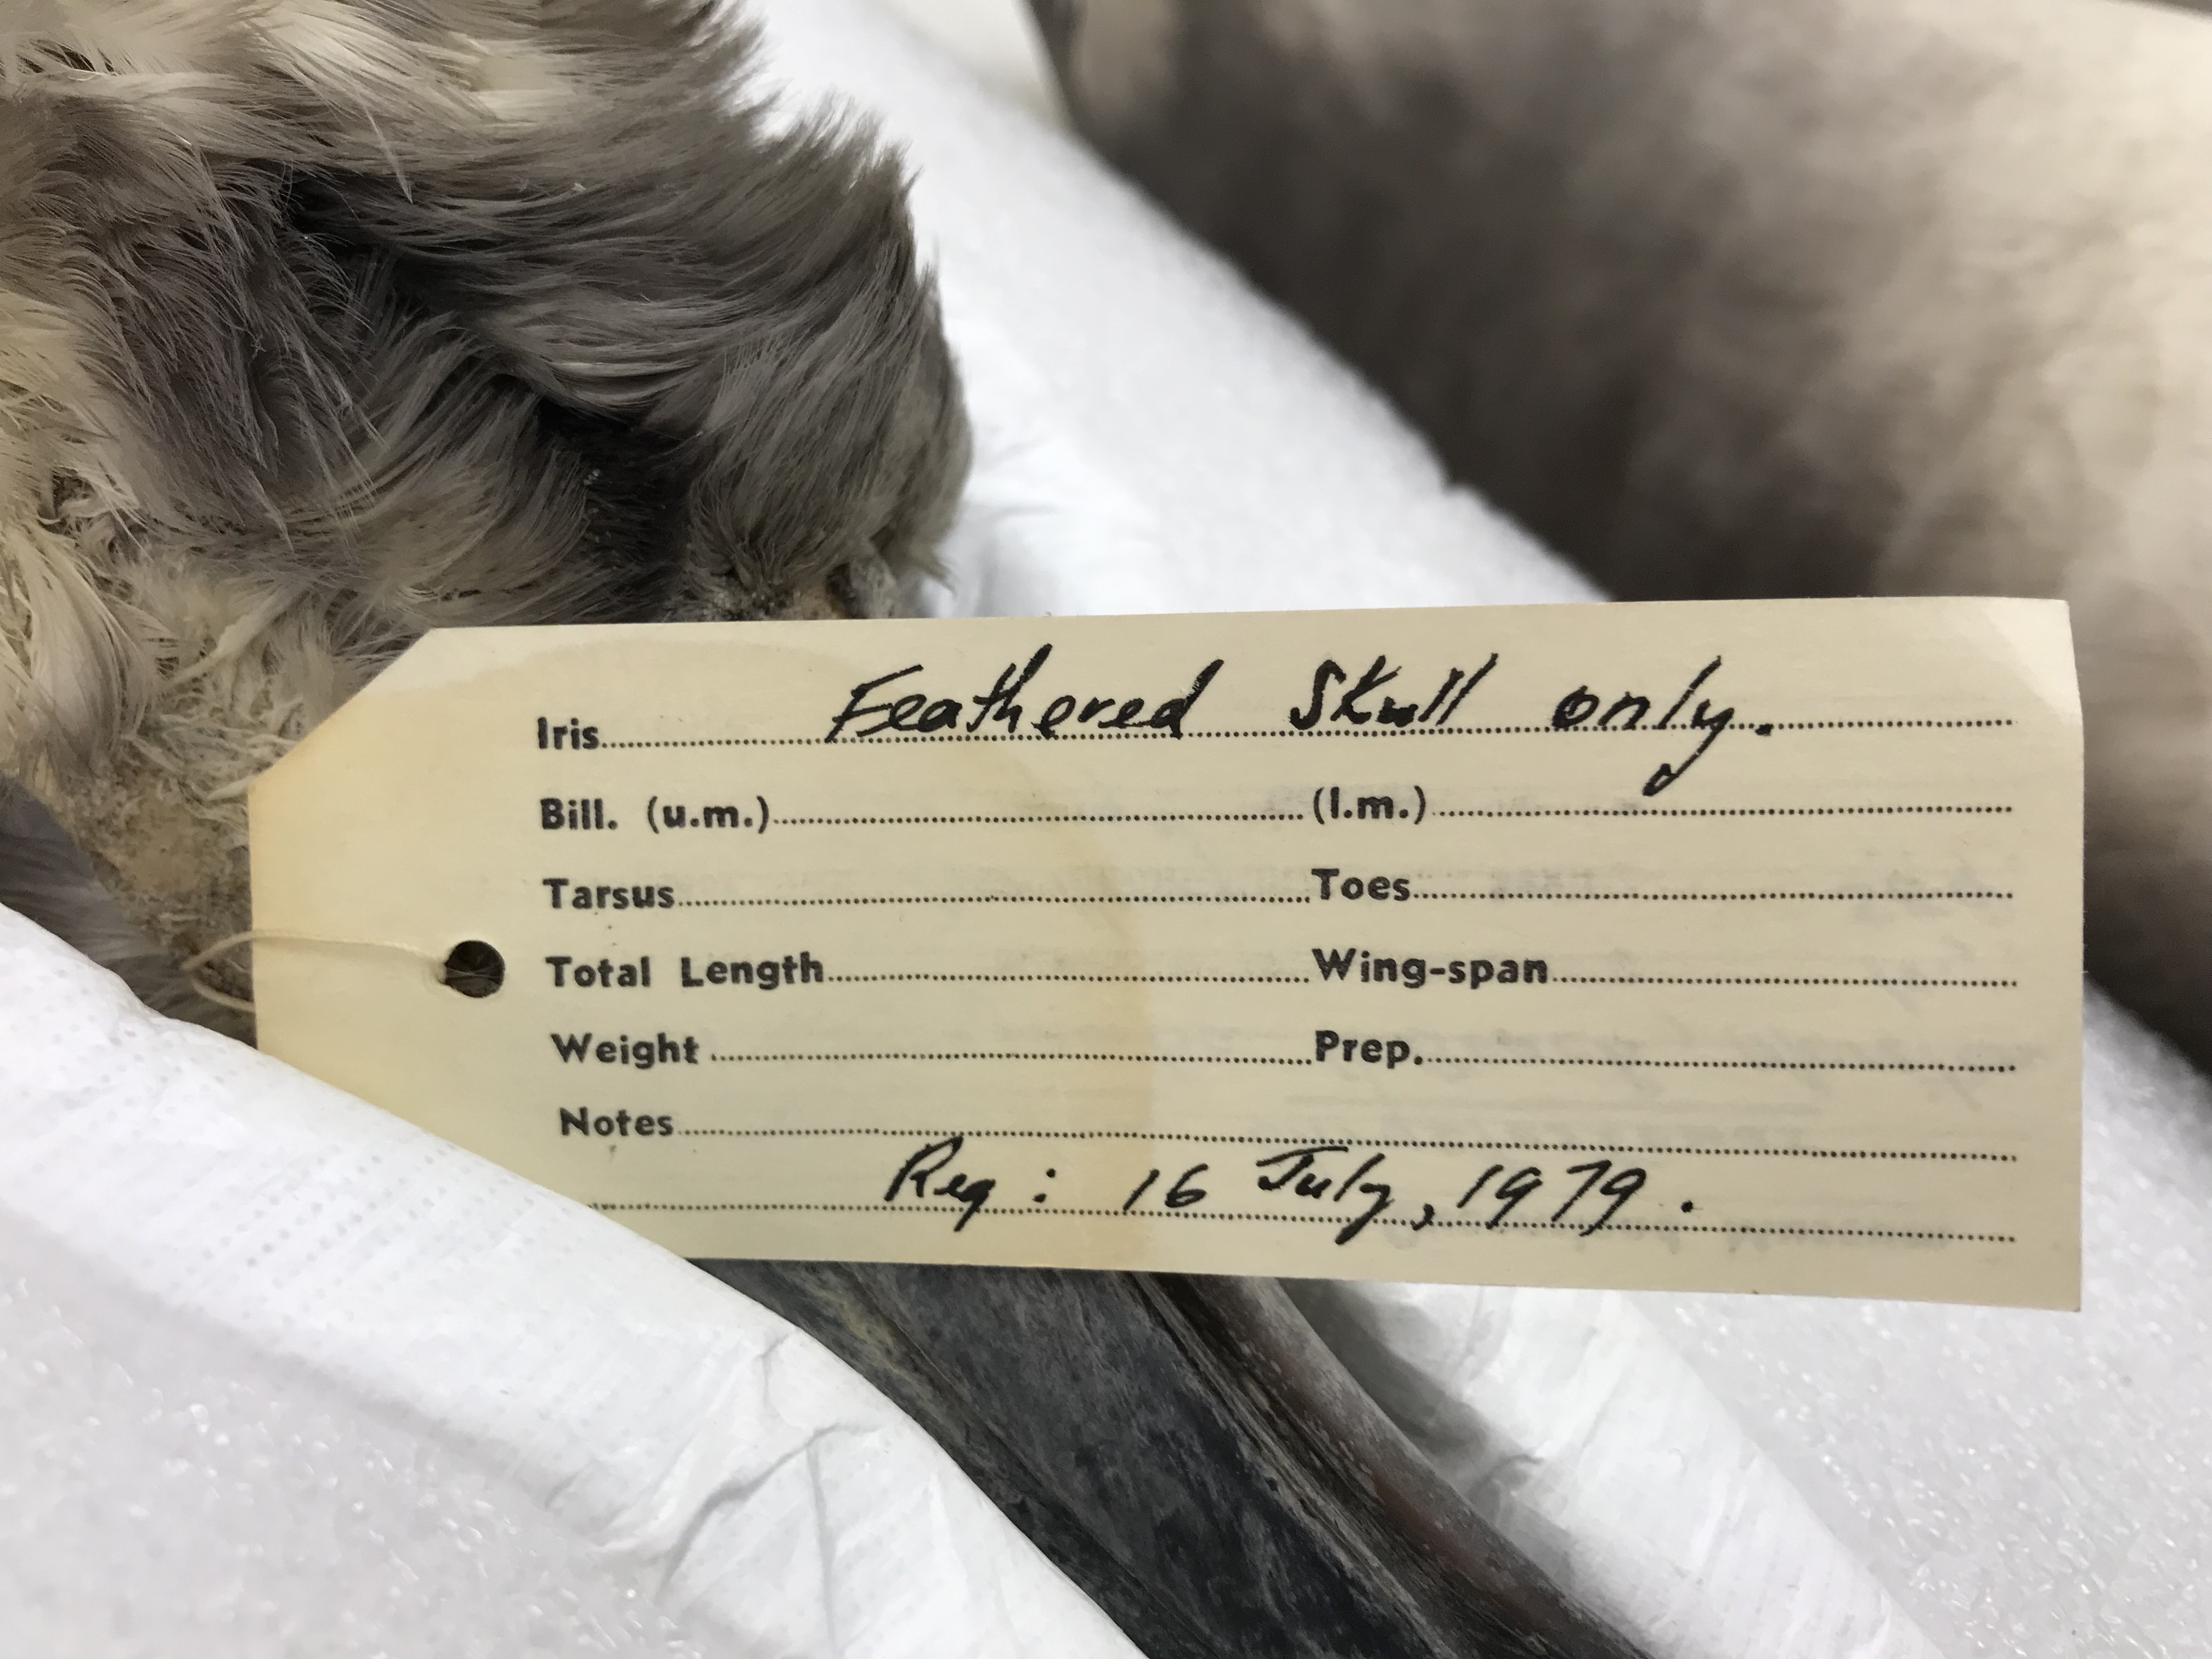 Iris Feathered Skull only.
Bill. (u.m.) (l.m.)
Tarsus Toes
Total Length Wing-span
Weight Prep.
Notes
Reg : 16 July, 1979.